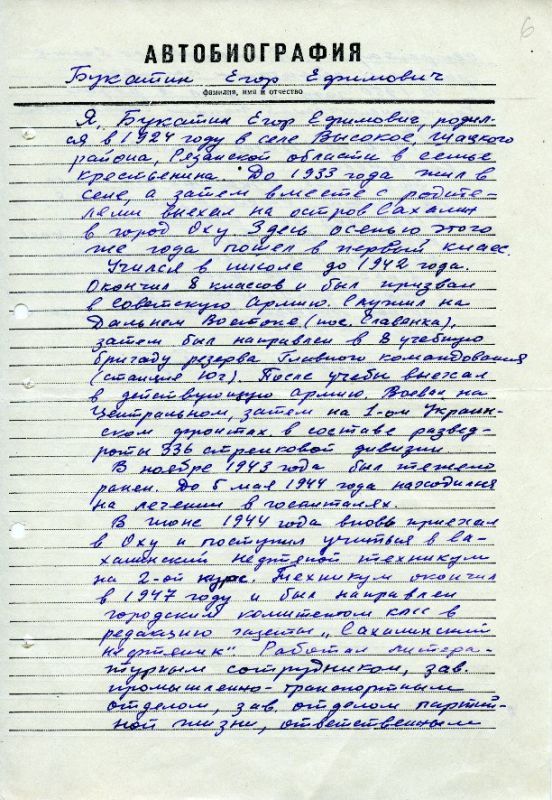 6
АВТОБИОГРАФИЯ
Букатин Егор Ефимович
фамилия, имя и отчество
Я, Букатин Егор Ефимович, родил-
ся в 1924 году в селе Высокое, Шацкого
района, Рязанской области в семье
крестьянина. До 1933 года жил в
селе, а затем вместе с родите-
лями выехал на остров Сахалин
в город Оху. Здесь осенью этого
же года пошел в первый класс.
Учился в школе до 1942 года.
Окончил 8 классов и был призван
в Советскую Армию. Служил на
Дальнем Востоке (пос. Славянка),
затем был направлен в 8 учебную
бригаду резерва Главного командования
(станция Юг). После учебы выехал
в действующую армию. Воевал на
Центральном, затем на 1-ом Украин-
ском фронтах в составе развед-
роты 336 стрелковой дивизии
В ноябре 1943 года был тяжело
ранен. До 5 мая 1944 года находился
на лечении в госпиталях.
В июне 1944 года вновь приехал
в Оху и поступил учиться в Са-
халинский нефтяной техникум
на 2-ой курс. Техникум окончил
в 1947 году и был направлен
городским комитетом КПСС в
редакцию газеты „Сахалинский
нефтяник" Работал литера-
турным сотрудником, зав.
промышленно-транспортным
отделом, зав. отделом партий-
ной жизни, ответственным